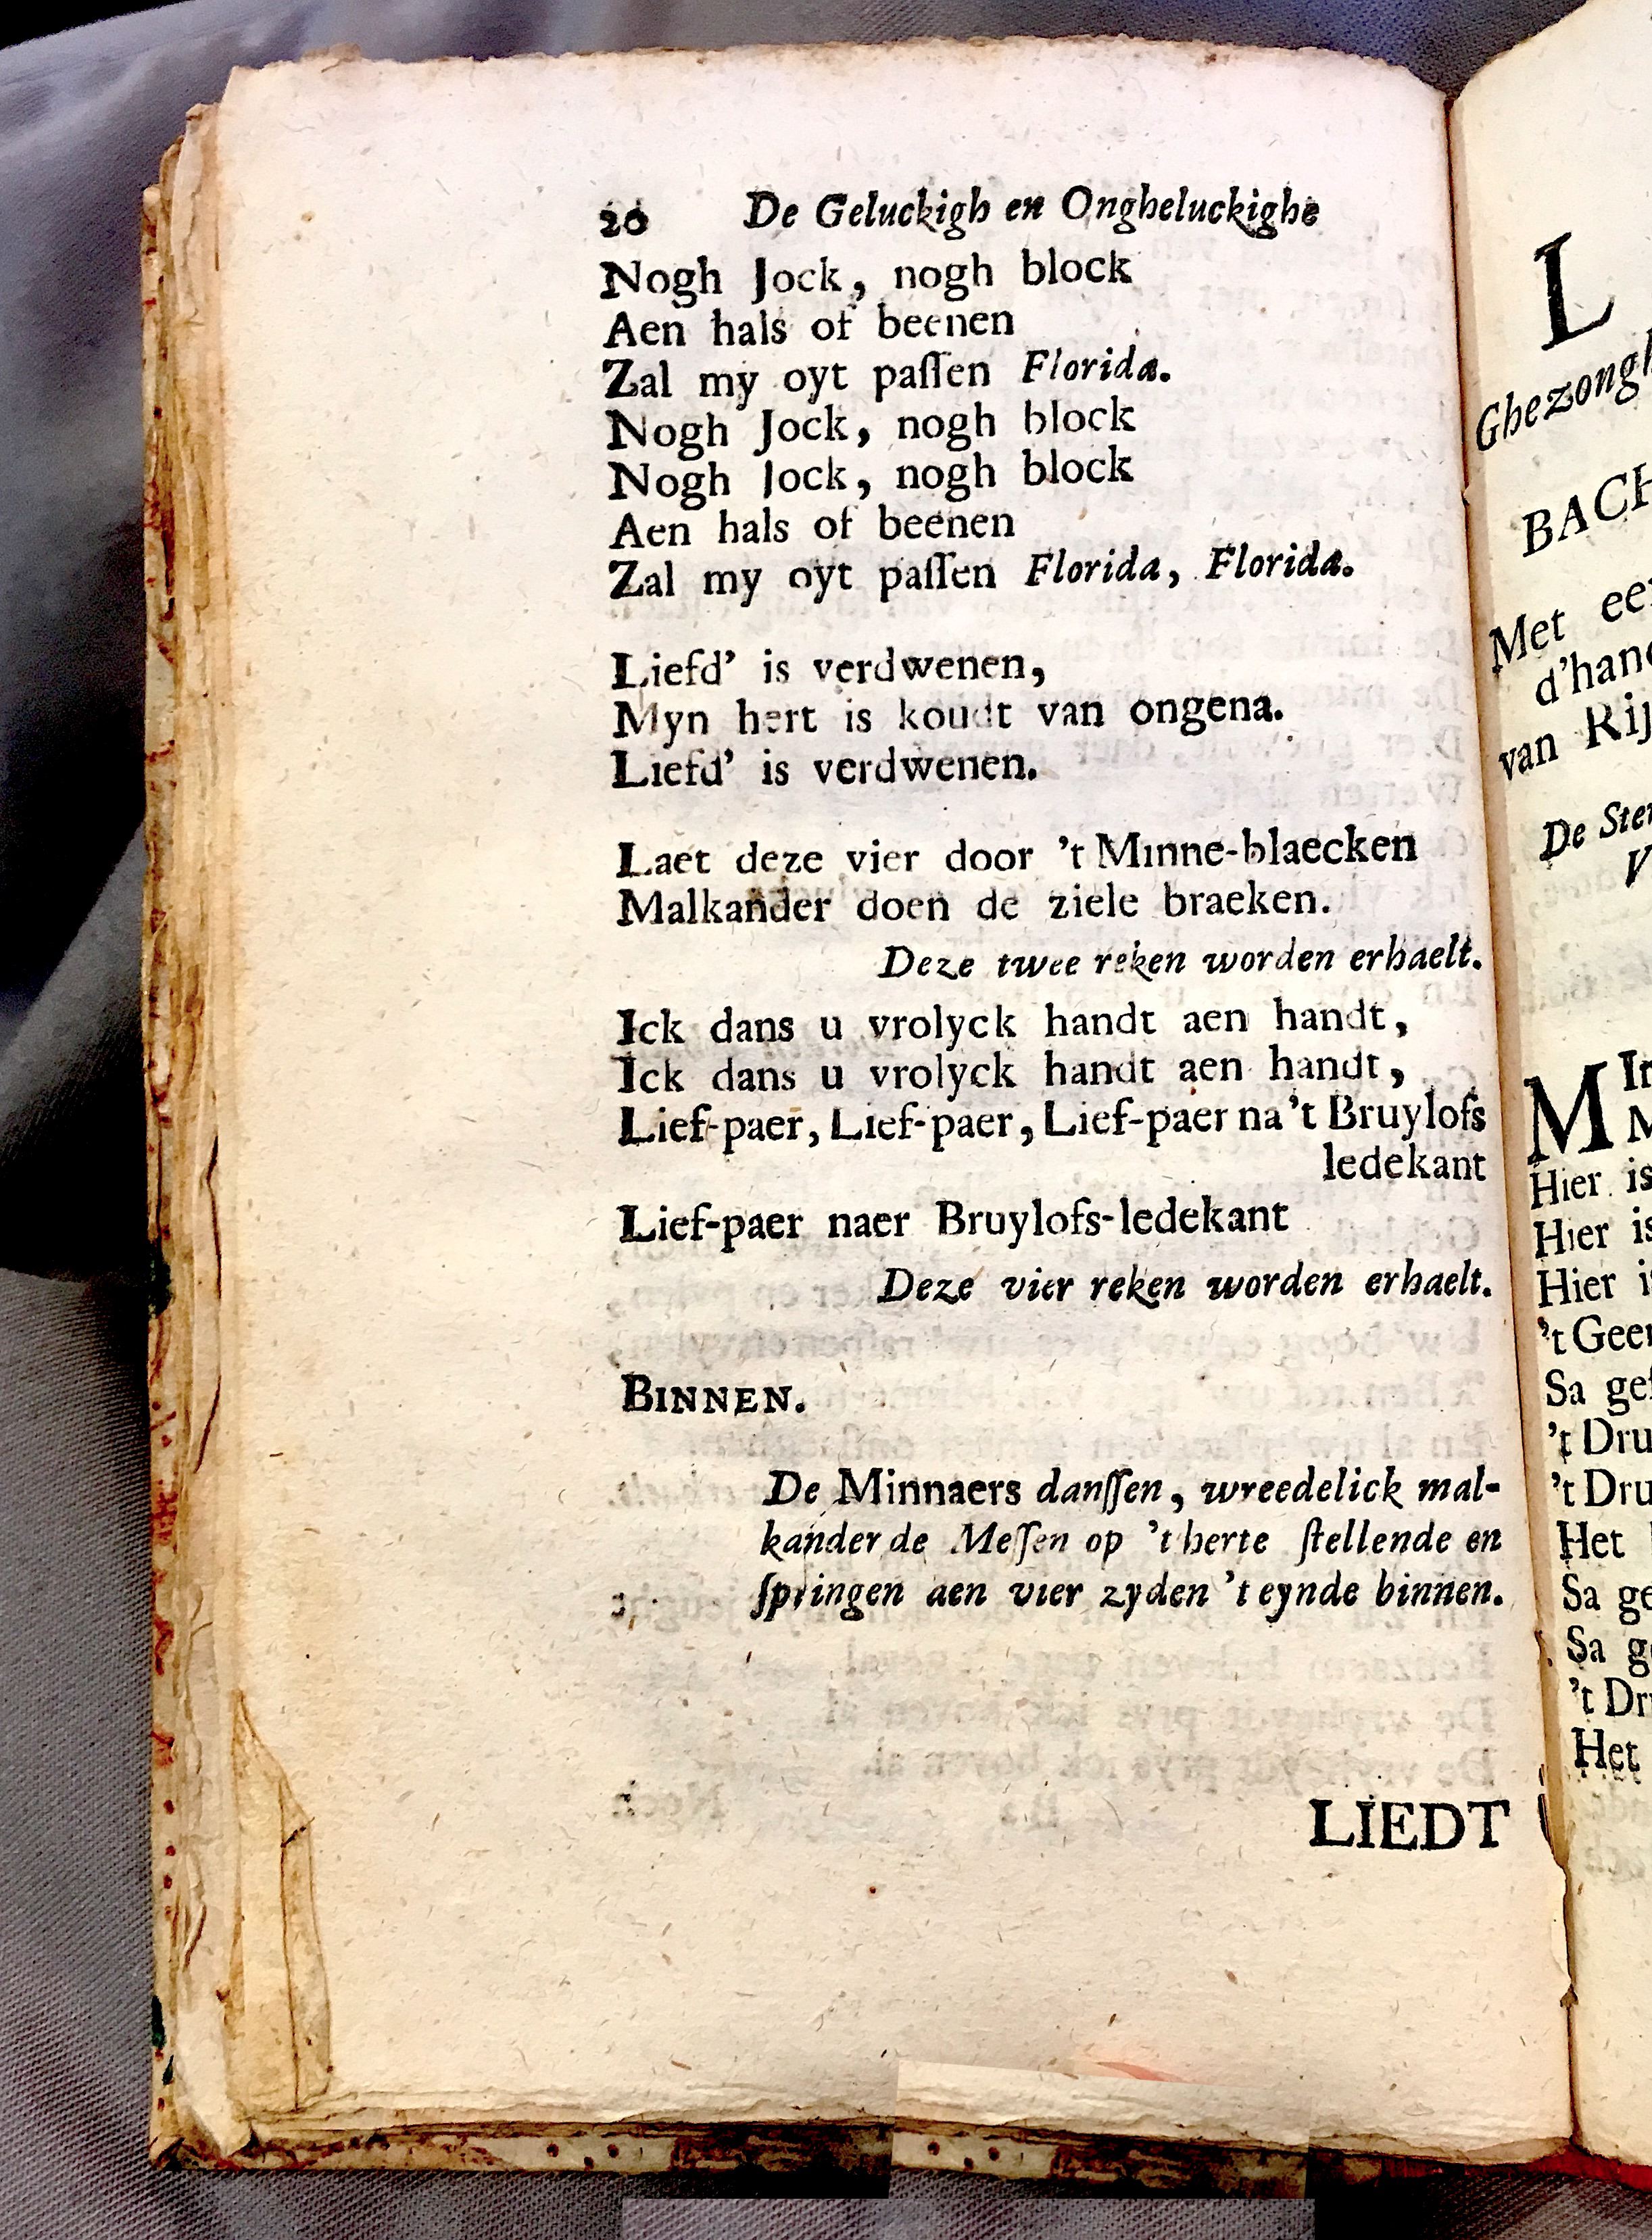 20 De Geluckigh en Ongheluckighe
Nogh Jock, nogh block
Aen hals of beenen
Zal my oyt paſſen Florida.
Nogh Jock, nogh block
Nogh Jock, nogh block
Aen hals of beenen
Zal my oyt paſſen Florida, Florida.
Liefd' is verdwenen,
Myn hert is koudt van ongena.
Liefd' is verdwenen.
Laet deze vier door 't Minne-blaecken
Malkander doen de ziele braeken.
Deze twee reken worden erhaelt.
Ick dans u vrolyck handt aen handt,
Ick dans u vrolyck handt aen handt,
Lief-paer, Lief-paer, Lief-paer na't Bruylofs
ledekant
Lief-paer naer Bruylofs-ledekant
Deze vier reken worden erhaelt.
BINNEN.
De Minnaers danſſen, wreedelick mal-
kander de Meſſen op 't herte ſtellende en
ſpringen aen vier zyden 't eynde binnen.
LIEDT
L
BACH
Met
van
De
Hier is
Hier is
Hier
't
Sa
't
't
Het
Sa
Sa
't
Het